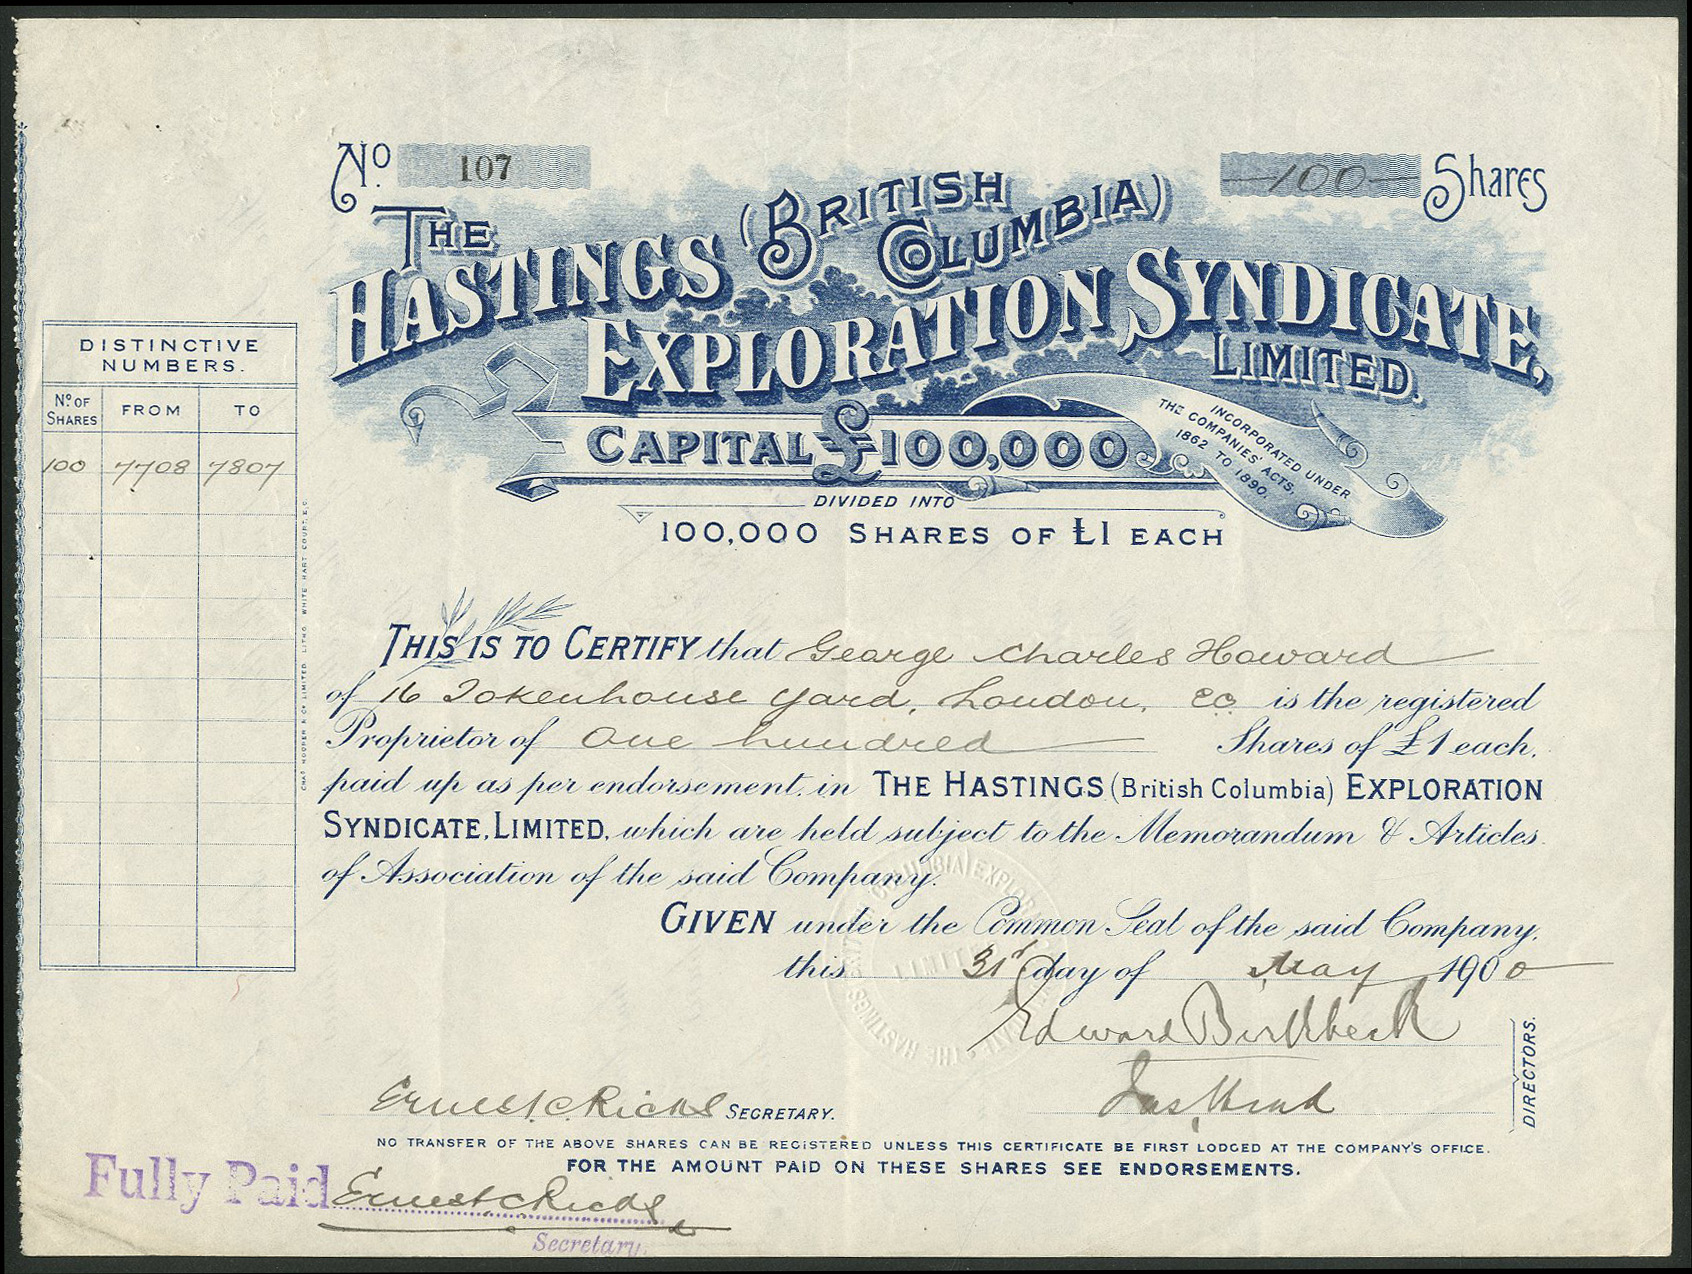 No. 107
—100— Shares
THE
HASTINGS (BRITISH COLUMBIA)
EXPLORATION SYNDICATE,
LIMITED.
CAPITAL £100,000
INCORPORATED UNDER
THE COMPANIES' ACTS,
1862 TO 1890.
DIVIDED INTO
100,000 SHARES OF £1 EACH
DISTINCTIVE
NUMBERS.
No. OF SHARES FROM TO
100 7708 7807
CHAS HOOPER & CO LIMITED. LITHO. WHITE HART COURT, E.C.
THIS IS TO CERTIFY that George Charles Howard
of 16 Tokenhouse Yard, London, EC is the registered
Proprietor of One hundred Shares of £1 each,
paid up as per endorsement, in THE HASTINGS (British Columbia) EXPLORATION
SYNDICATE, LIMITED, which are held subject to the Memorandum & Articles
of Association of the said Company.
GIVEN under the Common Seal of the said Company,
this 31st day of May 1900
Edward Birkbeck
DIRECTORS.
SECRETARY.
NO TRANSFER OF THE ABOVE SHARES CAN BE REGISTERED UNLESS THIS CERTIFICATE BE FIRST LODGED AT THE COMPANY'S OFFICE.
FOR THE AMOUNT PAID ON THESE SHARES SEE ENDORSEMENTS.
Fully Paid
Secretary.